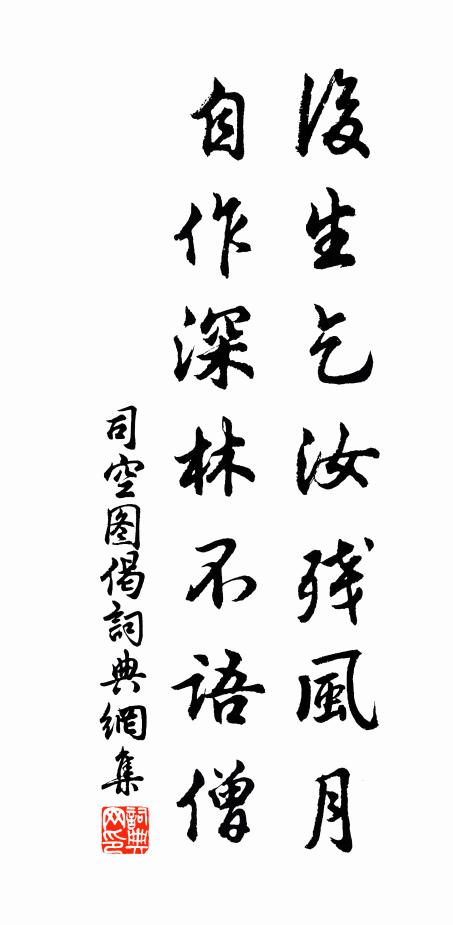 後生乞汝残風月
自作深林不語僧
司空图偈詞典網集
詞典网印